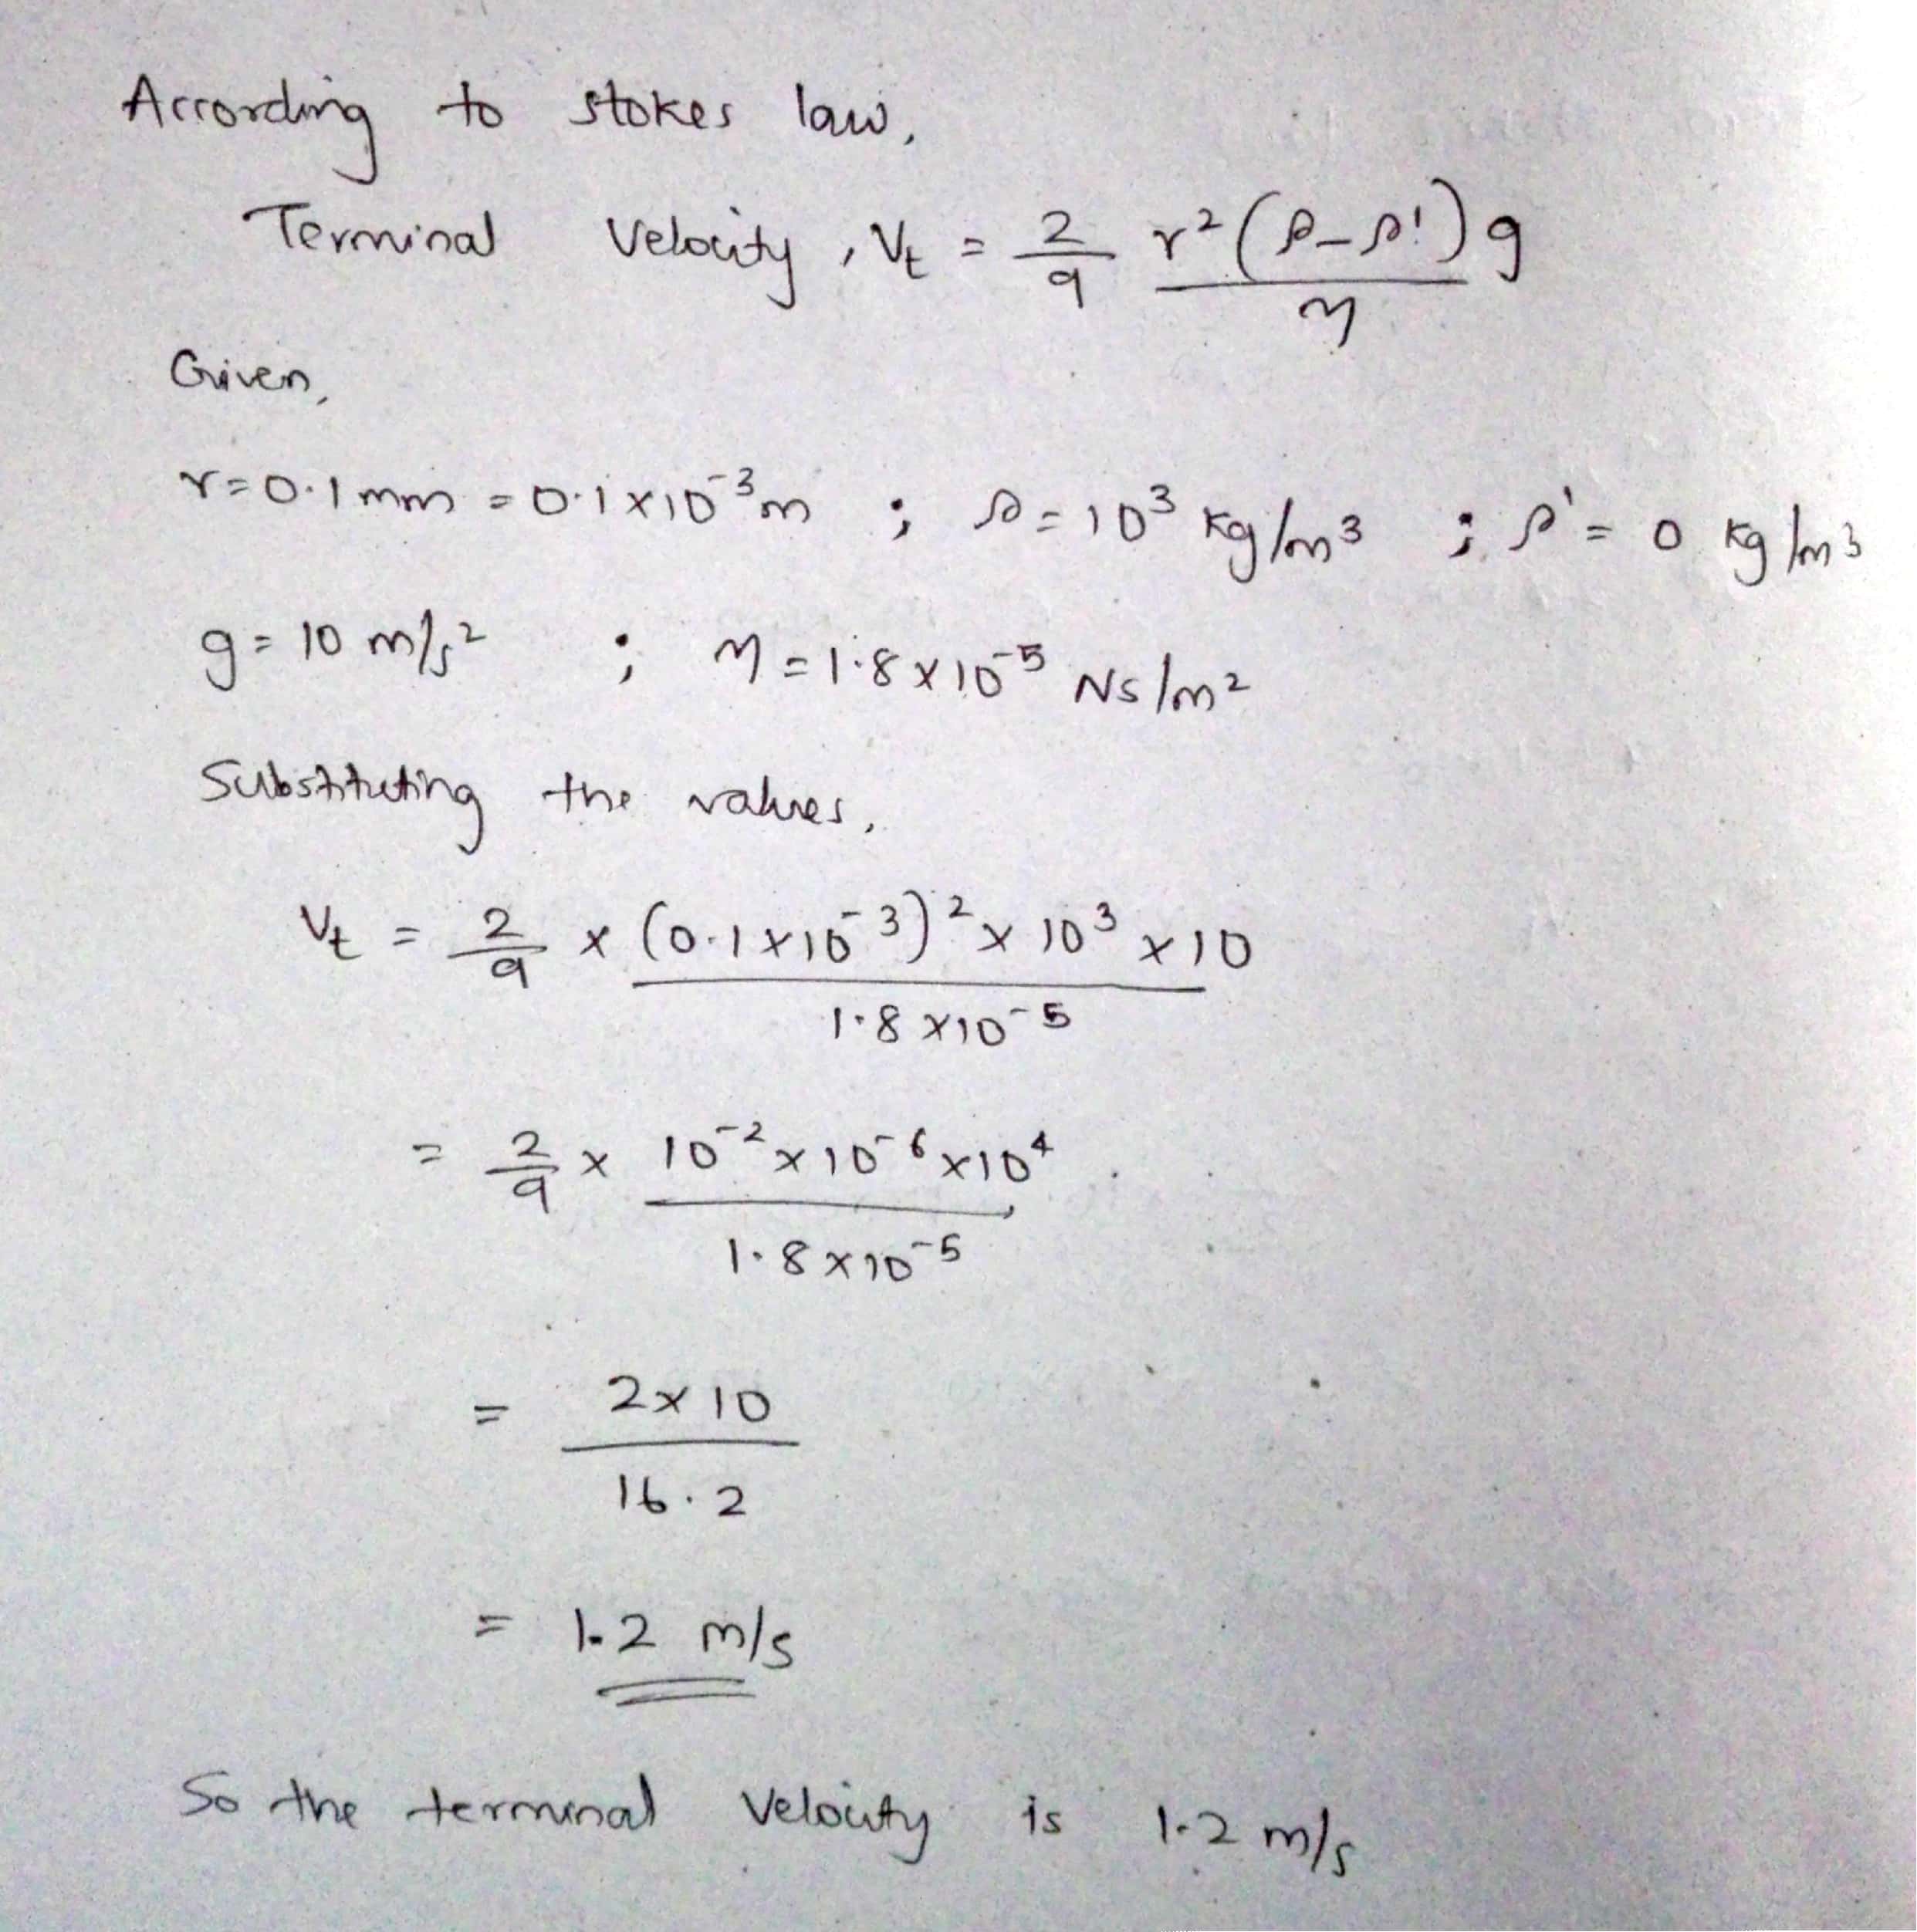 According to stokes law,
Terminal Velocity, Vt = 2/9 r²(ρ-ρ')g/η
Given,
r=0.1mm = 0.1×10⁻³m ; ρ=10³ kg/m³ ; ρ'= 0 kg/m³
g= 10 m/s² ; η=1.8×10⁻⁵ Ns/m²
Substituting the values,
Vt = 2/9 × (0.1×10⁻³)²×10³×10 / 1.8×10⁻⁵
= 2/9 × 10⁻²×10⁻⁶×10⁴ / 1.8×10⁻⁵
= 2×10 / 16.2
= 1.2 m/s
So the terminal Velocity is 1.2 m/s